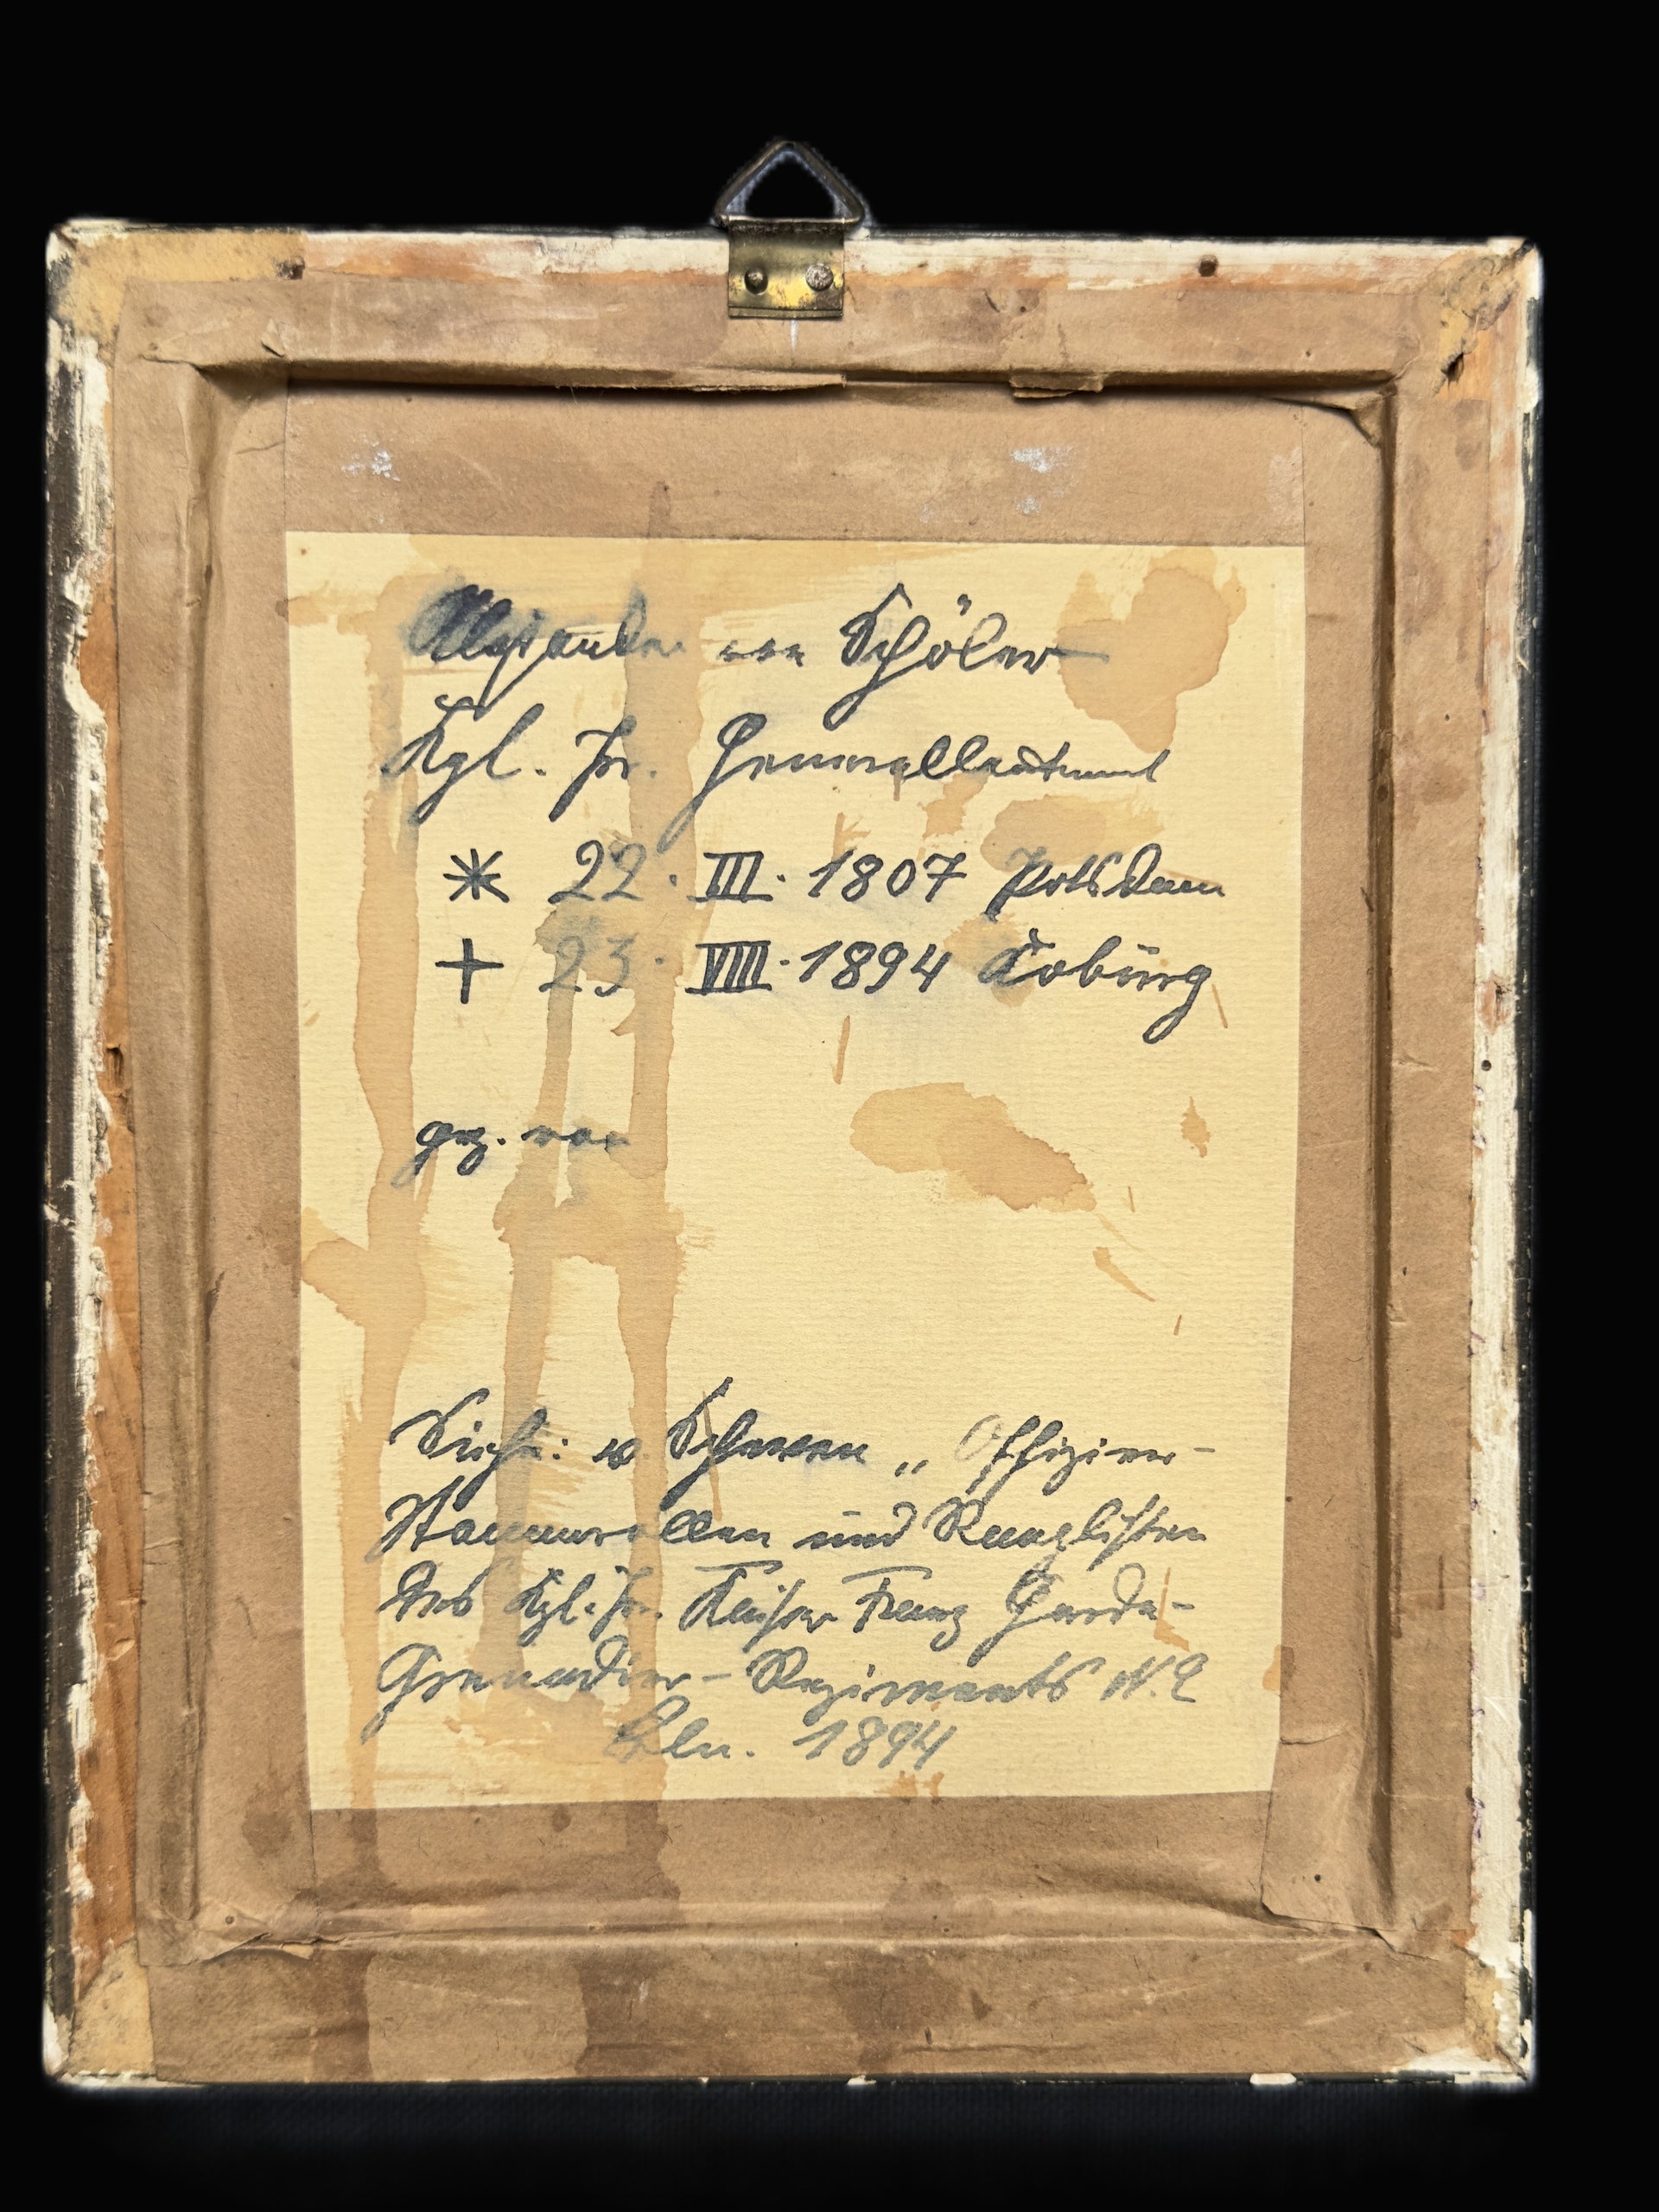 Alexander von Schöler
Kgl. Pr. Generalleutnant
* 22. III. 1807 Potsdam
+ 23. VIII. 1894 Koburg
gez. von
Siehe: v. Scheven „Offizier-
Stammrollen und Ranglisten
des Kgl. Pr. Kaiser Franz Garde-
Grenadier-Regiments N. 2
Bln. 1894